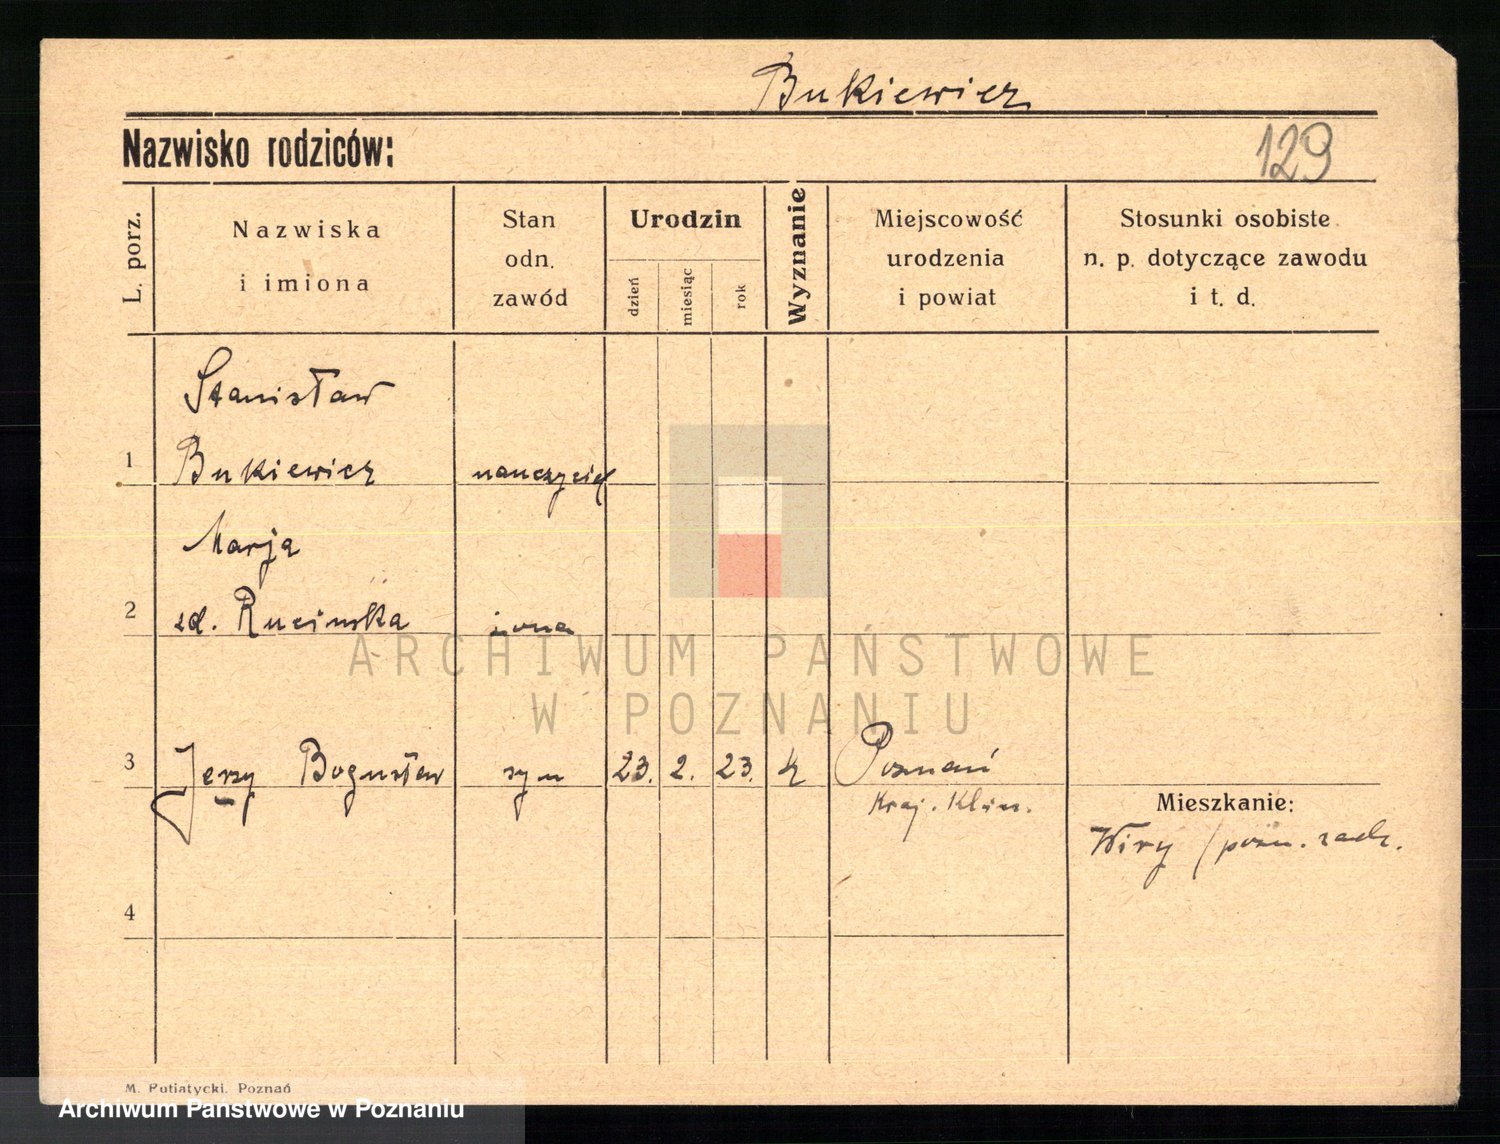 Bukiewicz
Nazwisko rodziców:
129
L. porz.
Nazwiska
i imiona
Stan
odn.
zawód
Urodzin
dzień
miesiąc
rok
Wyznanie
Miejscowość
urodzenia
i powiat
Stosunki osobiste
n. p. dotyczące zawodu
i t. d.
Stanisław
1 Bukiewicz nauczyciel
Marja
2 zd. Rucinska żona
3 Jerzy Bogusław syn 23. 2. 23. k Poznań
Kraj. Klin.
Mieszkanie:
Wiry / pozn. zach.
4
ARCHIWUM PAŃSTWOWE
W POZNANIU
M. Putiatycki. Poznań
Archiwum Państwowe w Poznaniu